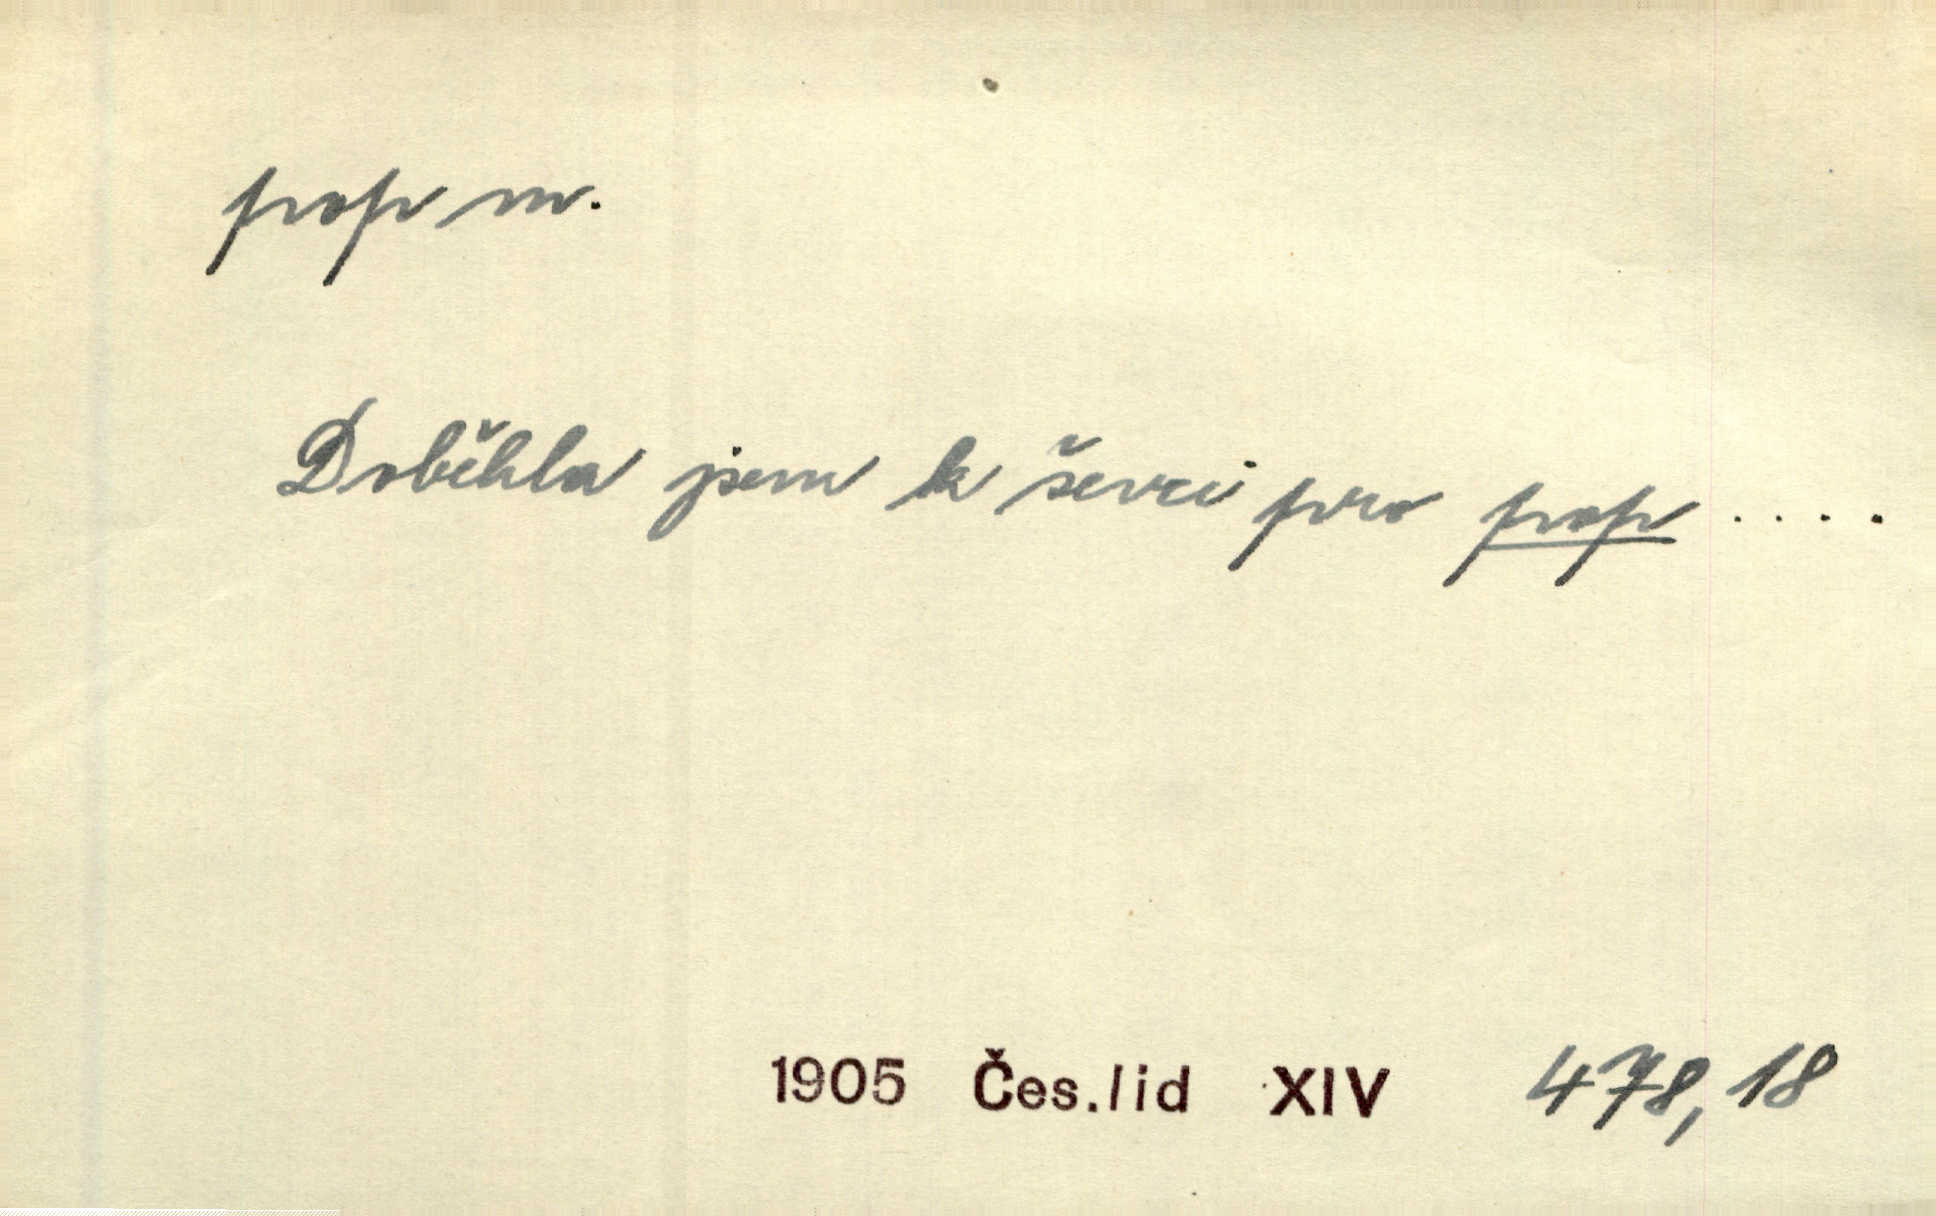 pop m.
Doběhla jsem k ševci pro pop ....
1905 Čes.lid XIV 478,18